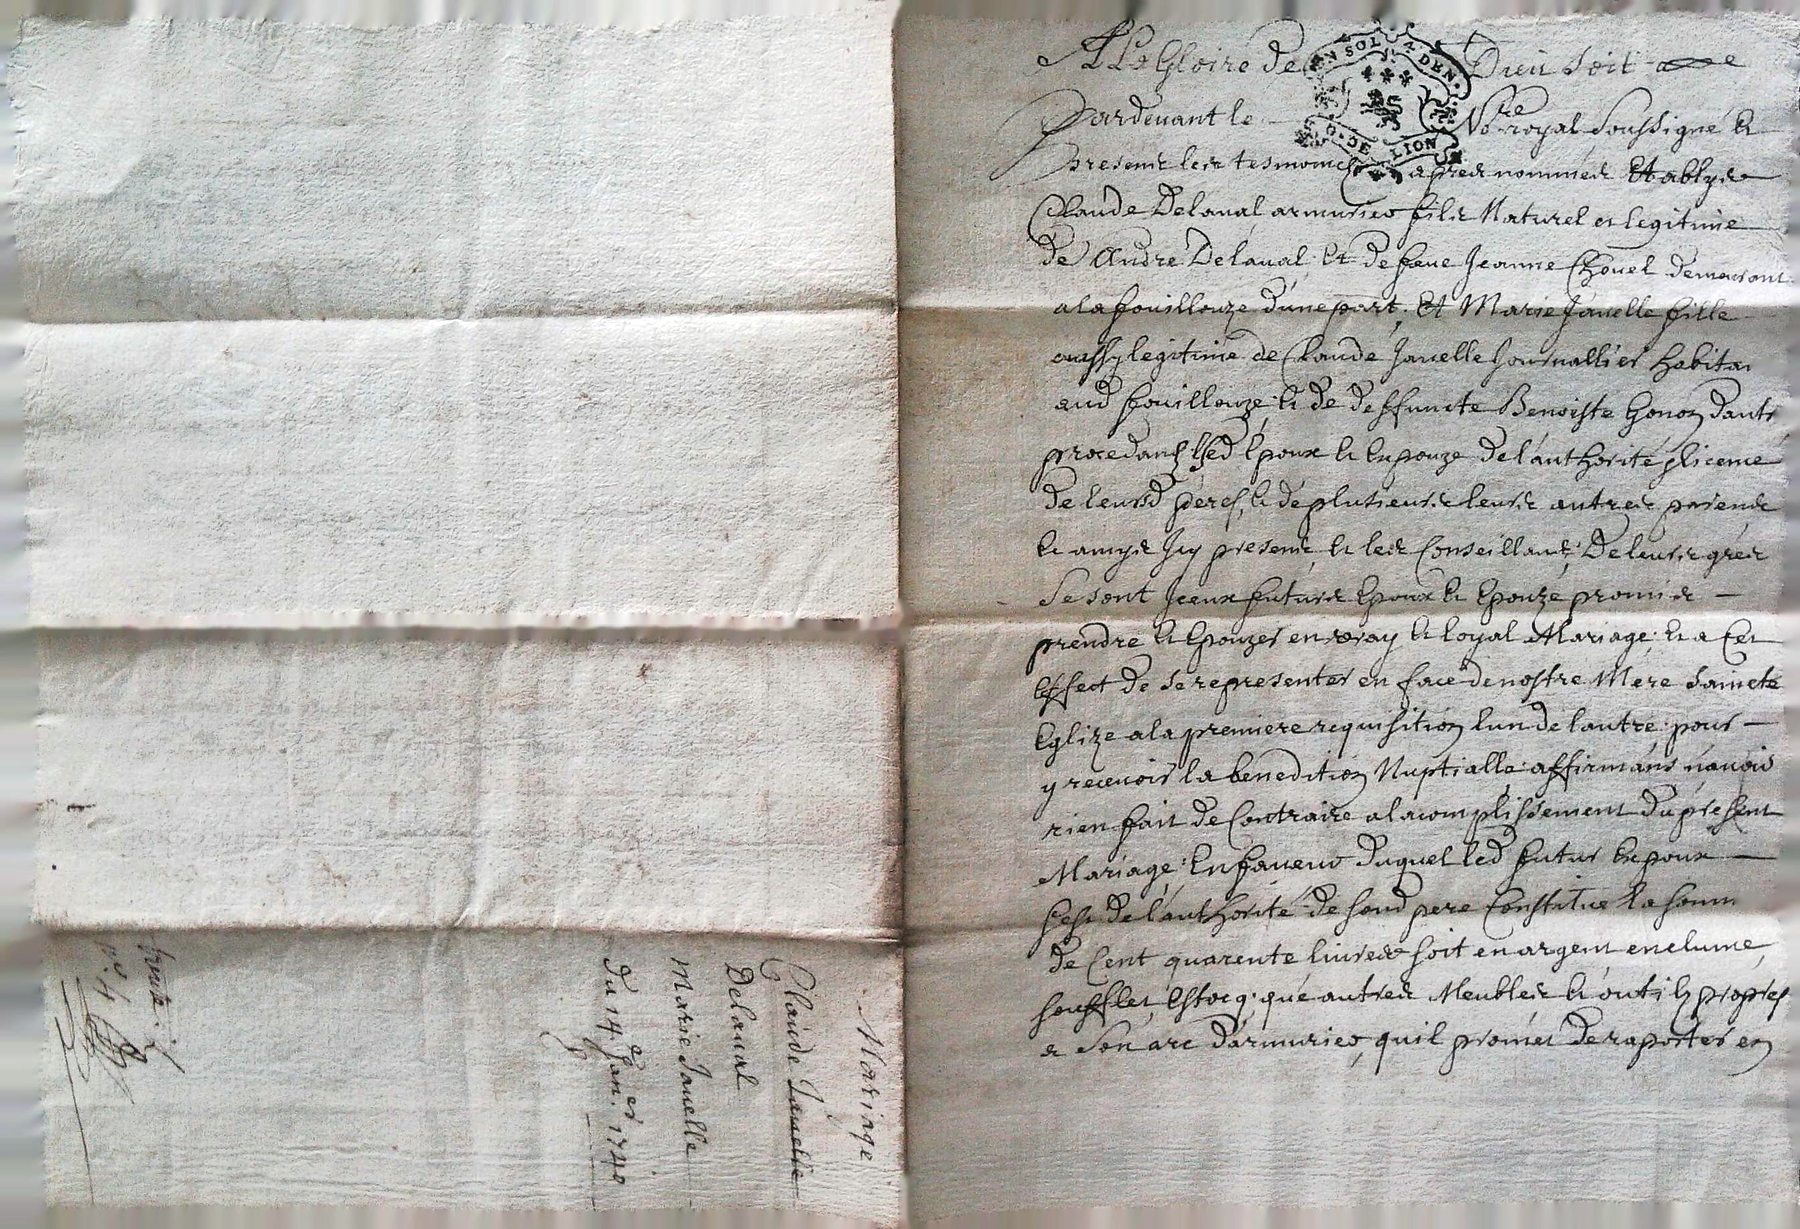 A La Gloire de Dieu soit
Pardevant le No.re royal soussigné et
presents les tesmoings apres nommés Establys
Claude Delaval armurier fils Naturel et legitime
de André Delaval et de feue Jeanne Chovel demeurant
a la fouillouze d'une part, Et Marie Javelle fille
aussy legitime de Claude Javelle Journallier habitan
aud fouillouze et de deffuncte Benoiste d'autre
procedants lesd époux et Espouze de l'authorité licence
de leursd péres, et de plusieurs leurs autres parents
et amys Icy presents et les Conseillants, De leurs gréz
se sont Iceux futurs Epoux et Epouze promis
prendre et Epouzer en vray et loyal Mariage et a Cet
effect de se representer en face de nostre Mere Saincte
Eglize a la premiere requisition l'un de l'autre pour
y recevoir la benedition Nuptialle affirmans n'avoir
rien fait de Contraire a l'acomplissement du present
Mariage: En faveur duquel led futur Epoux
s'est de l'authorité de sond pere Constitué la som
de Cent quarente livres soit en argent enclume,
soufflet, Estocq, que autres Meubles et outils propres
a son art d'armurier, quil promet de raporter en
Mariage
Claude Javelle
Delaval
Marie Javelle
du 14 Jan.er 1740